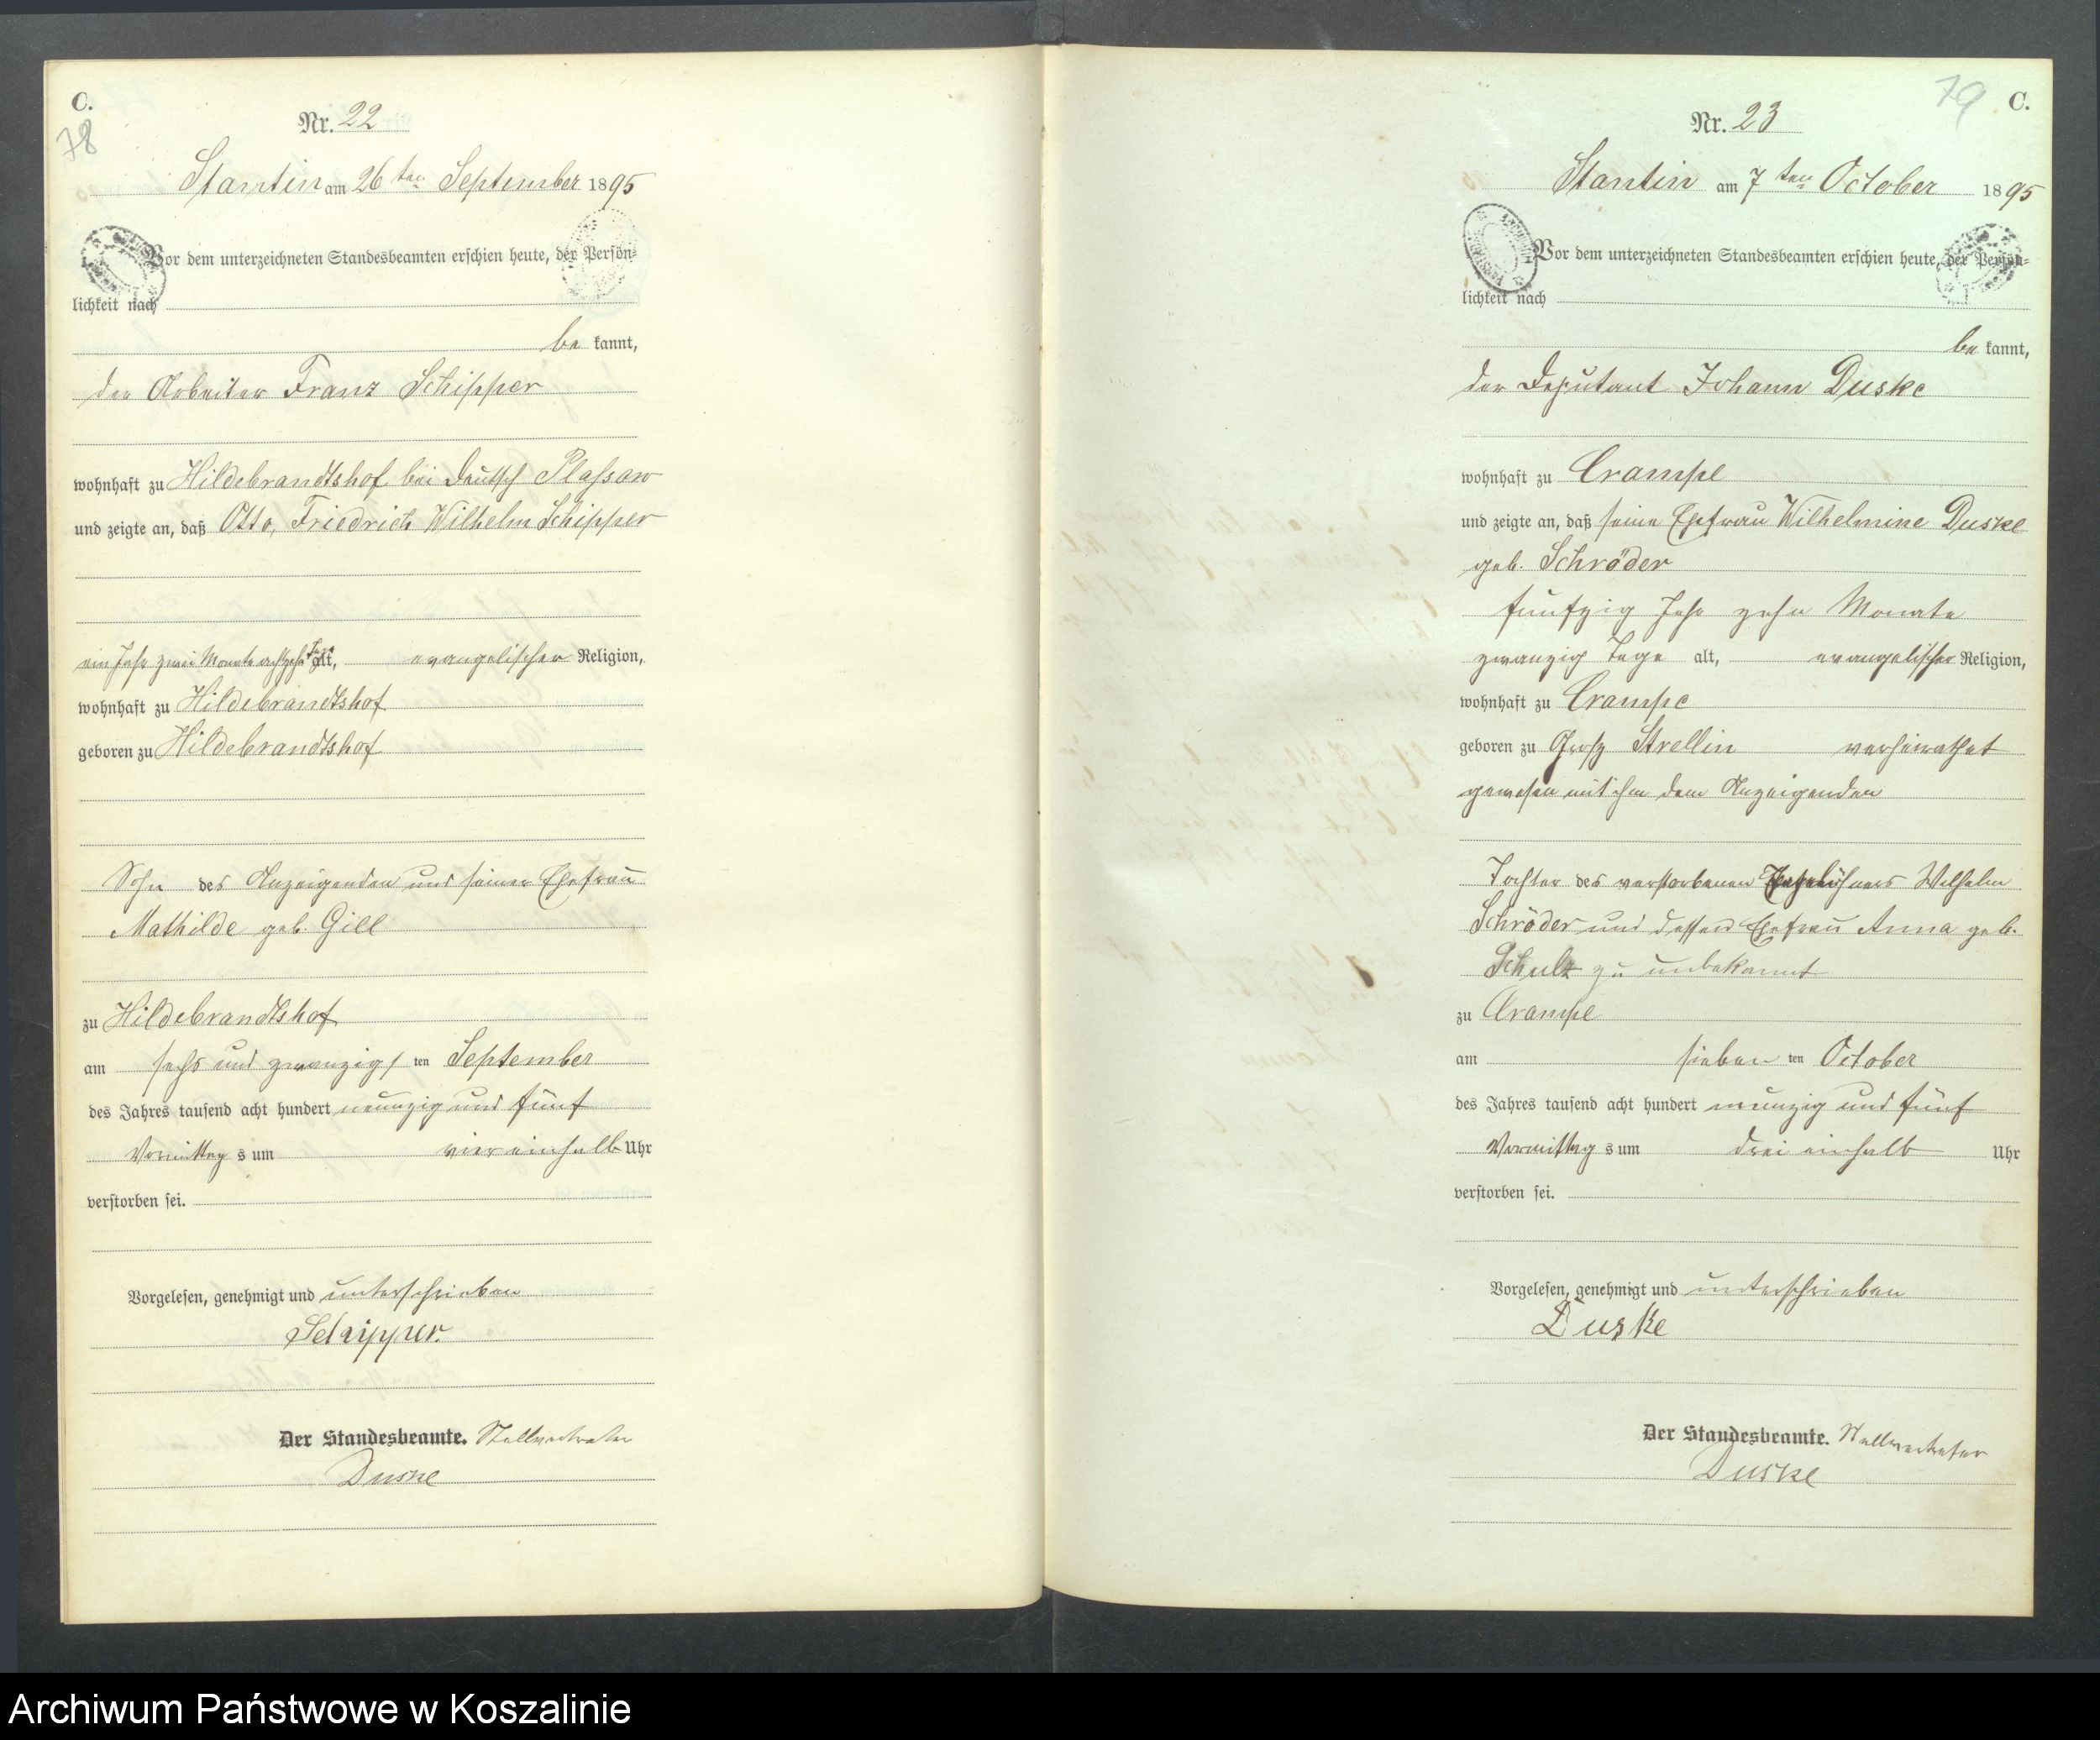 C.
78
Nr. 22
Stantin am 26 ten September 1895
Vor dem unterzeichneten Standesbeamten erschien heute, der Persön-
lichkeit nach
be kannt,
der Arbeiter Franz Schipper
wohnhaft zu Hildebrandtshof bei Deutsch Plassow
und zeigte an, daß Otto, Friedrich Wilhelm Schipper
ein Jahr zwei Monate achtzehn Tage alt, evangelischer Religion,
wohnhaft zu Hildebrandtshof
geboren zu Hildebrandtshof
Sohn des Anzeigenden und seiner Ehefrau
Mathilde geb. Gill
zu Hildebrandtshof
am sechs und zwanzigsten September
des Jahres tausend acht hundert neunzig und fünf
Vormittags um vier einhalb Uhr
verstorben sei.
Vorgelesen, genehmigt und unterschrieben
Schipper.
Der Standesbeamte. Stellvertreter
Duske
79
C.
Nr. 23
Stantin am 7 ten October 1895
Vor dem unterzeichneten Standesbeamten erschien heute, der Persön-
lichkeit nach
be kannt,
der Deputant Johann Duske
wohnhaft zu Crampe
und zeigte an, daß seine Ehefrau Wilhelmine Duske
geb. Schröder
funfzig Jahr zehn Monate
zwanzig Tage alt, evangelischer Religion,
wohnhaft zu Crampe
geboren zu Groß Strellin verheirathet
gewesen mit ihm dem Anzeigenden
Tochter des verstorbenen Tagelöhners Wilhelm
Schröder und dessen Ehefrau Anna geb.
Schulz zu unbekannt
zu Crampe
am sieben ten October
des Jahres tausend acht hundert neunzig und fünf
Vormittags um drei einhalb Uhr
verstorben sei.
Vorgelesen, genehmigt und unterschrieben
Duske
Der Standesbeamte. Stellvertreter
Duske
Archiwum Państwowe w Koszalinie